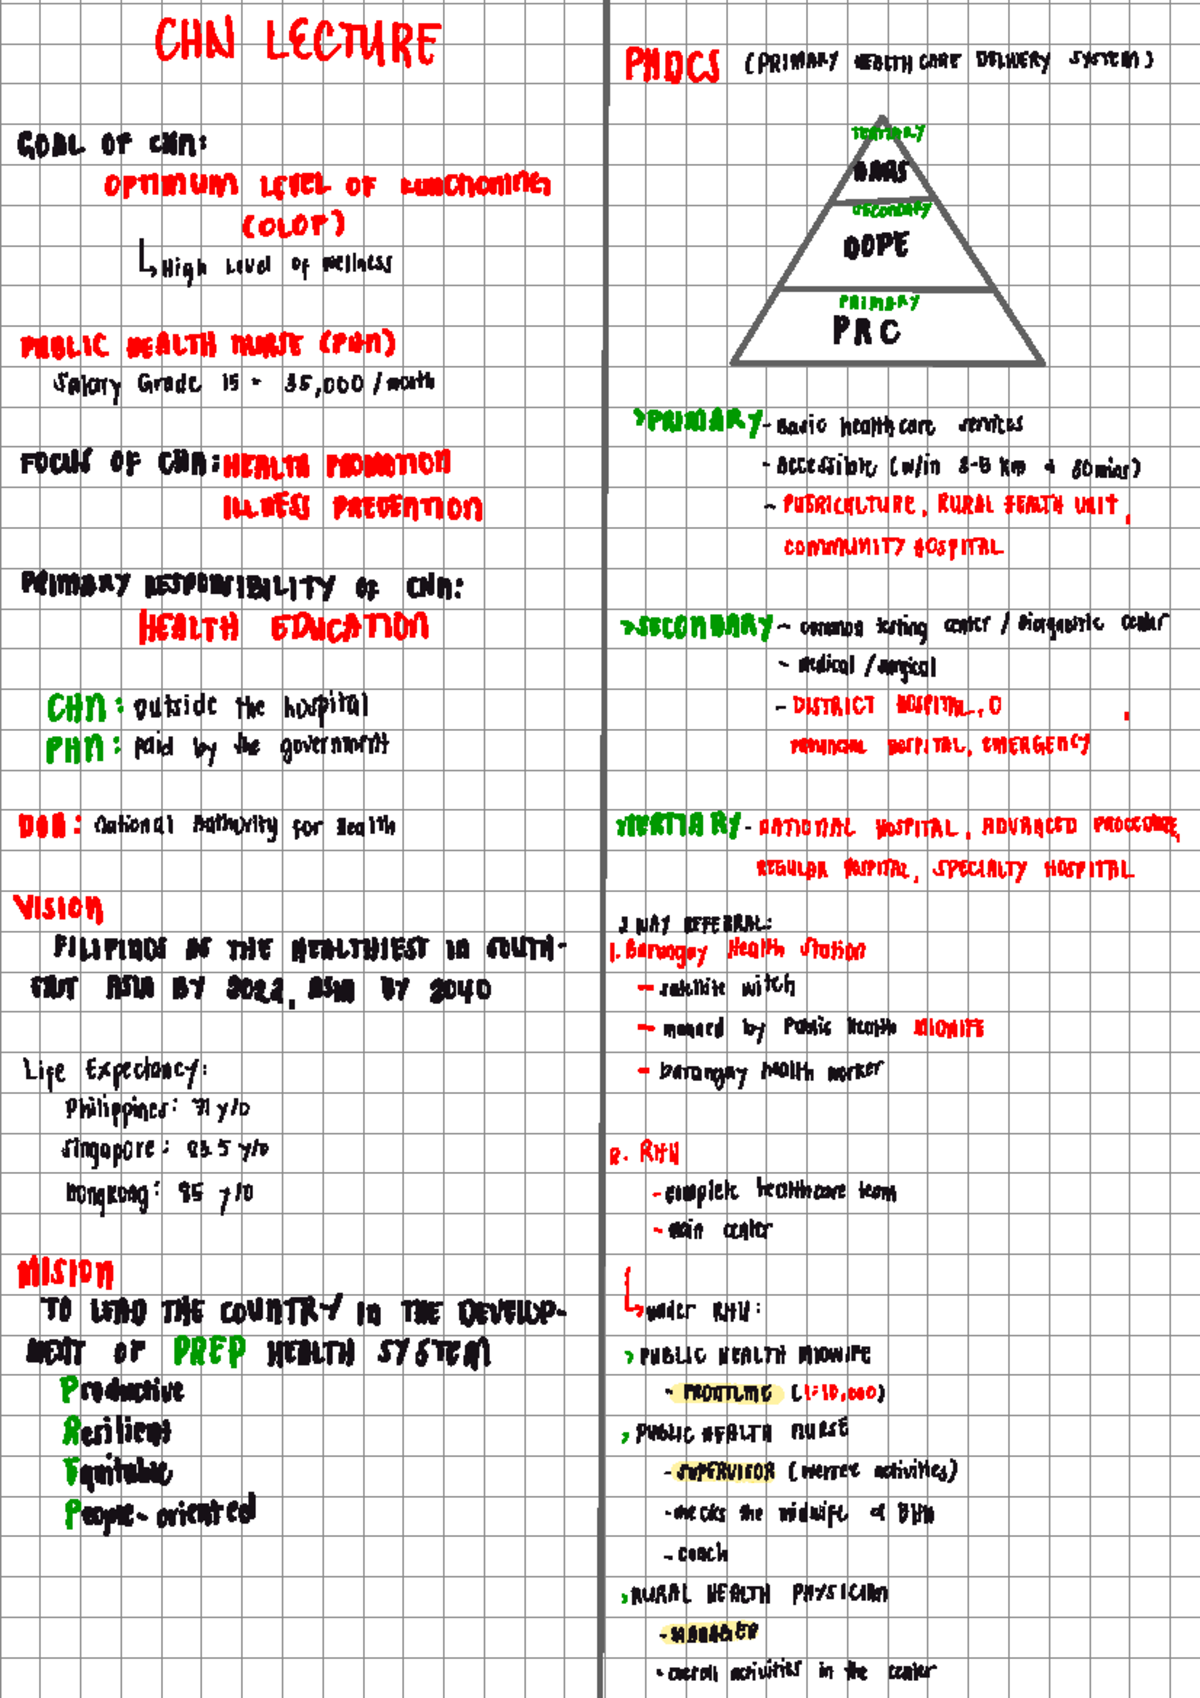 CHN LECTURE
GOAL OF CHN:
OPTIMUM LEVEL OF FUNCTIONING
(OLOF)
High Level of Wellness
PUBLIC HEALTH NURSE (PHN)
Salary Grade 15 - 35,000 / month
FOCUS OF CHN: HEALTH PROMOTION
ILLNESS PREVENTION
PRIMARY RESPONSIBILITY OF CHN:
HEALTH EDUCATION
CHN: outside the hospital
PHN: paid by the government
DOH: National Authority for Health
VISION
FILIPINOS AS THE HEALTHIEST IN SOUTH-
EAST ASIA BY 2022, ASIA BY 2040
Life Expectancy:
Philippines: 71 y/o
Singapore: 83.5 y/o
Hongkong: 85 y/o
MISION
TO LEAD THE COUNTRY IN THE DEVELOP-
MENT OF PREP HEALTH SYSTEM
Productive
Resilient
Equitable
People-oriented
PHDCS (PRIMARY HEALTH CARE DELIVERY SYSTEM)
TERTIARY
SECONDARY
DOPE
PRIMARY
PRC
>PRIMARY - Basic health care services
- Accessible (w/in 3-5 km & 30 mins)
- PUERICULTURE, RURAL HEALTH UNIT,
COMMUNITY HOSPITAL
>SECONDARY - common testing center / Diagnostic center
- medical / surgical
- DISTRICT HOSPITAL, O ,
PROVINCIAL HOSPITAL, EMERGENCY
>TERTIARY - NATIONAL HOSPITAL, ADVANCED PROCEDURE,
REGULAR HOSPITAL, SPECIALTY HOSPITAL
2 WAY REFERRAL:
1. Barangay Health Station
- satellite witch
- manned by Public Health MIDWIFE
- barangay health worker
2. RHU
- complete healthcare team
- main center
under RHU:
> PUBLIC HEALTH MIDWIFE
- FRONTLINE (1:10,000)
> PUBLIC HEALTH NURSE
- SUPERVISOR (oversee activities)
- checks the midwife & BHW
- coach
> RURAL HEALTH PHYSICIAN
- MANAGER
- overall activities in the center